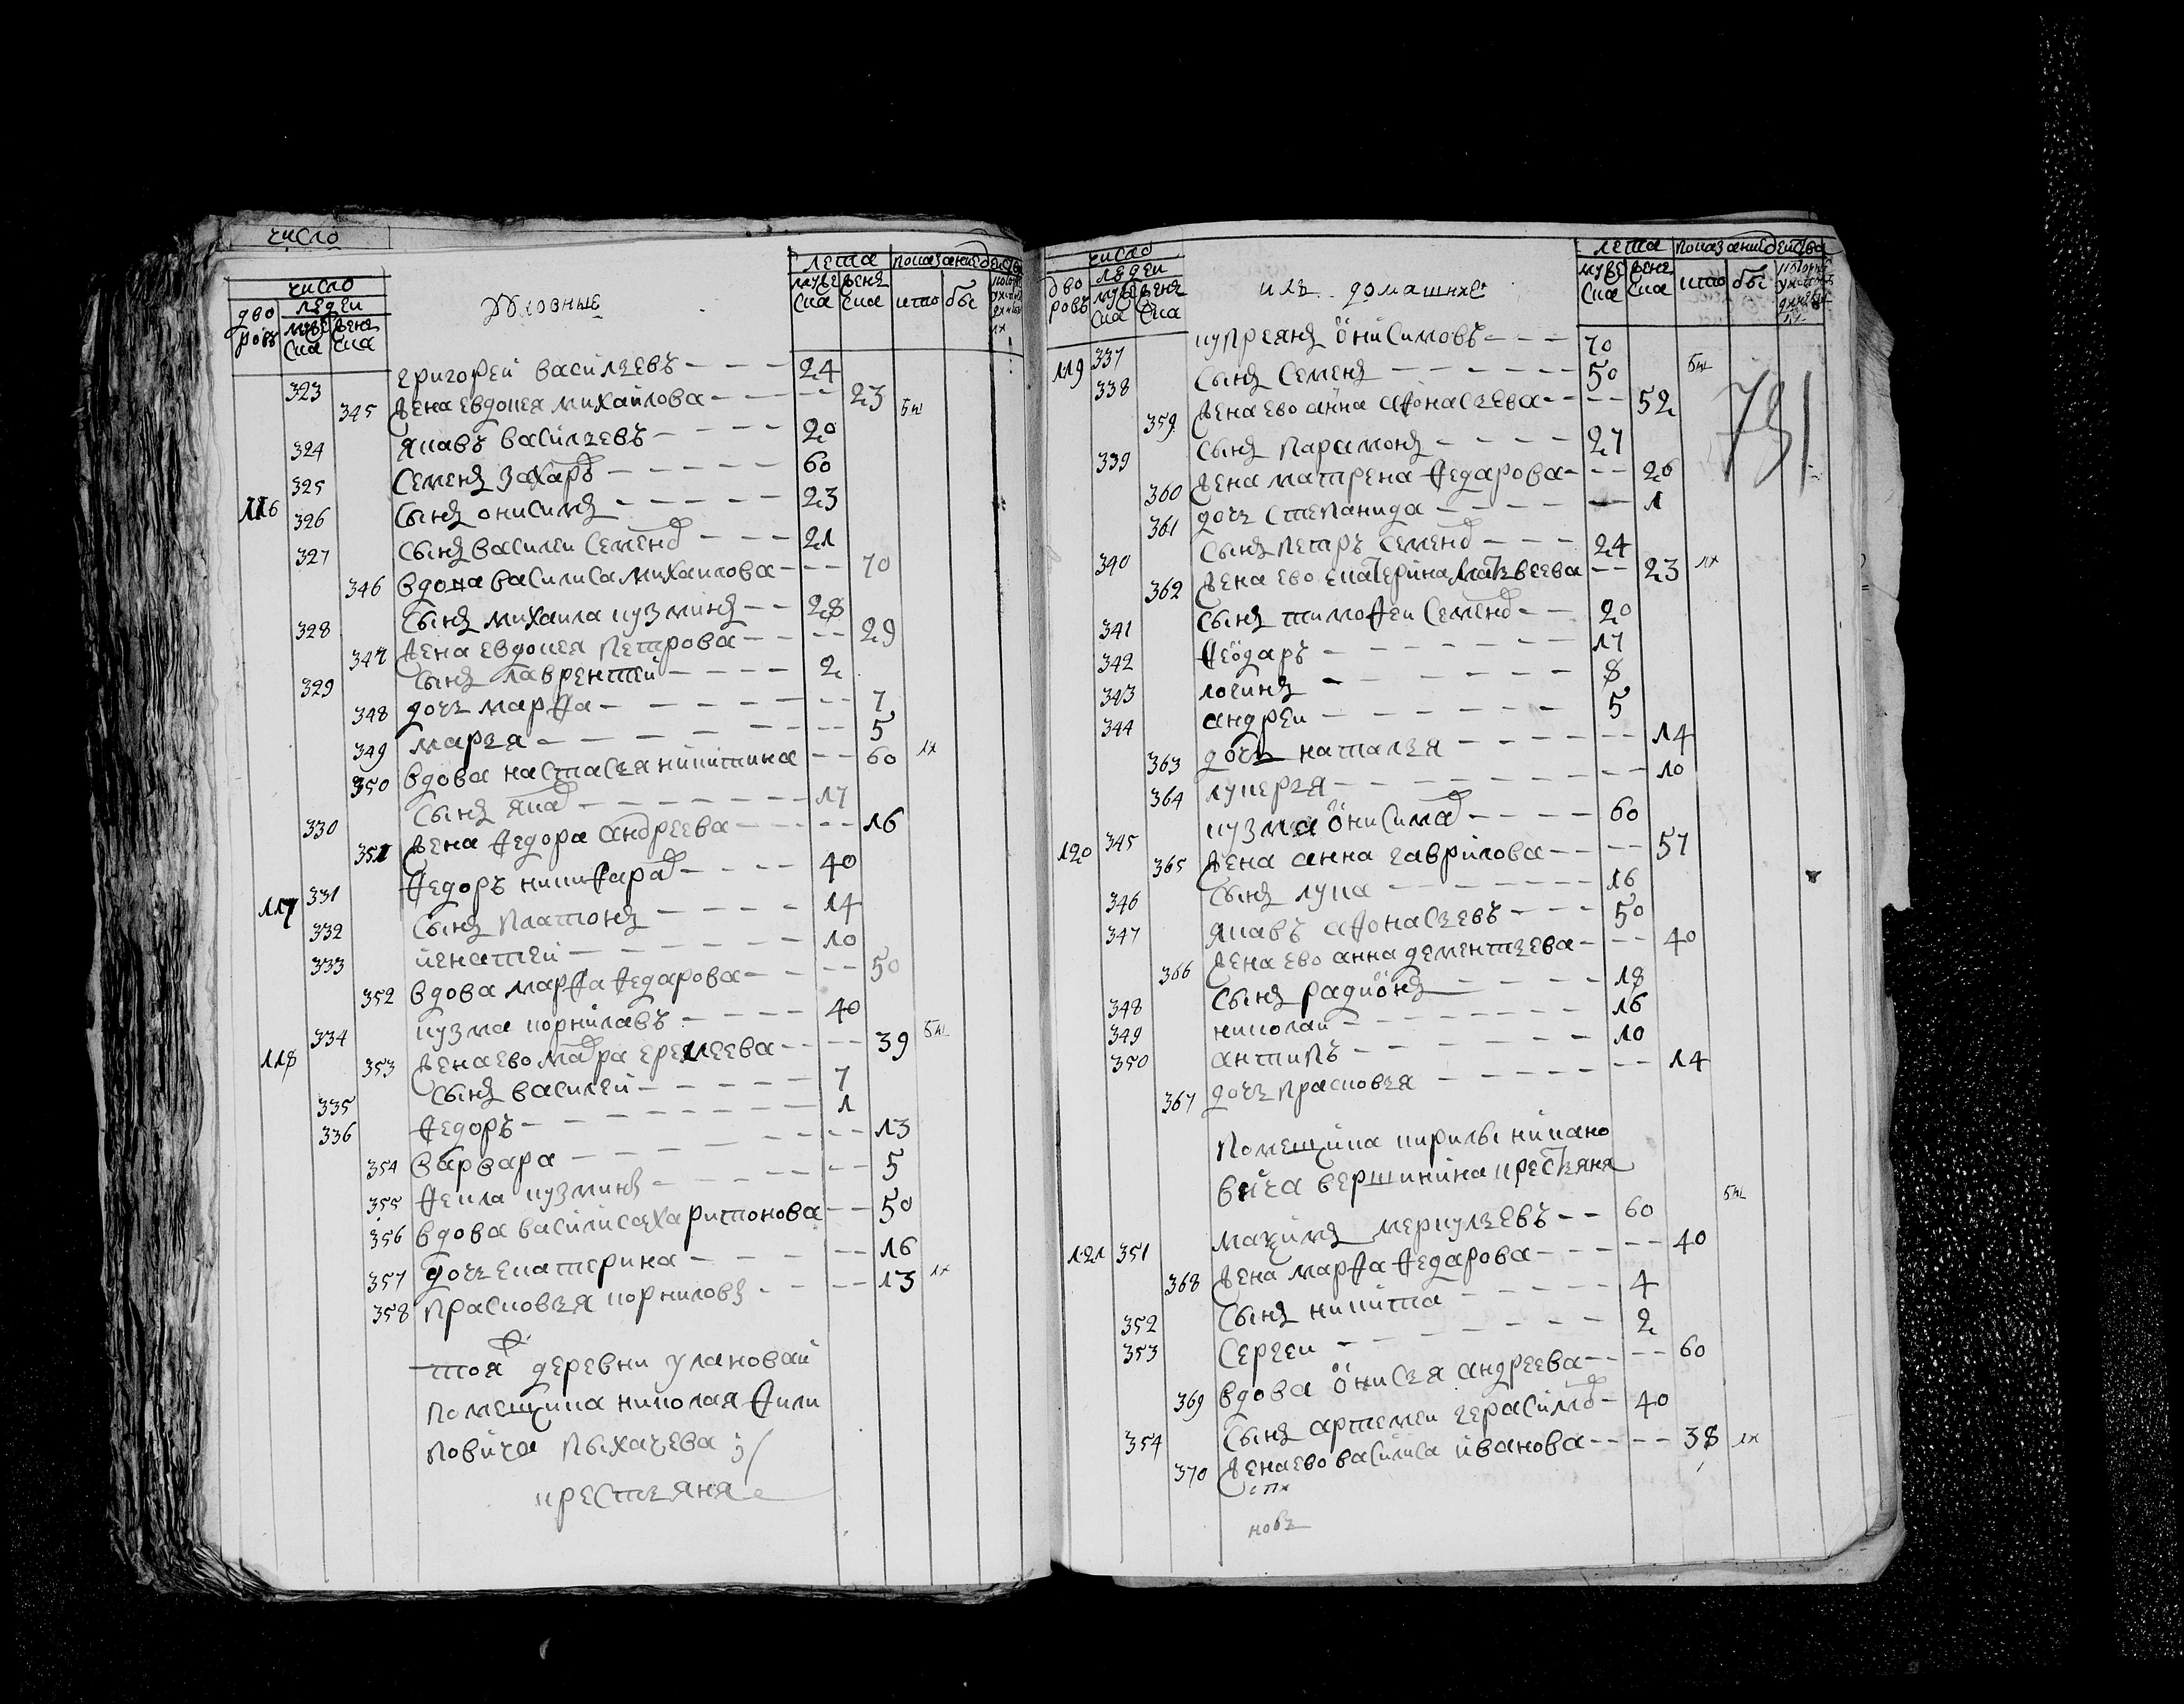 число
число
дво ровъ
людеи
муже ска
женс ска
духовныя
лета
муже ска
женс ска
показание действа
кто
бы
григорей василевъ - - - 24
323
345 жена евдокея михаилова - - - 23
324 яковъ василевъ - - - 20
325 семенъ захаръ - - - 60
116 326 сынъ онисимъ - - - 23
327 сынъ василеи семено - - - 21
346 вдова василиса михаилова - - - 70
328 сынъ михаила кузминъ - - 28
347 жена евдокея петрова - - - 29
329 сынъ лаврентей - - - 2
348 дочь марфа - - - 7
349 маръя - - - 5
350 вдова настасья никитина - - 60
330 сынъ яко - - - 17
351 жена федора андреева - - - 16
117 331 федоръ никифаро - - - 40
332 сынъ платонъ - - - 14
333 игнатей - - - 10
352 вдова марфа федарова - - - 50
118 334 кузма корнилавъ - - - 40
353 жена ево матра еремеева - - - 39
335 сынъ василей - - - 7
336 федоръ - - - 1
354 варвара - - - 13
355 фекла кузминъ - - - 5
356 вдова василиса харитонова - - 50
357 дочь екатерина - - - 16
358 прасковья корниловъ - - - 13
тоя деревни улановай
помещика николая фили
повича пыхачева
крестьяня
число
дво ровъ
людеи
муже ска
женс ска
илъ домашнхе
лета
муже ска
женс ска
показание действа
кто
бы
119 337 купреянъ онисимовъ - - - 70
338 сынъ семенъ - - - 50
359 жена ево анна афонасьева - - - 52
731
339 сынъ парамонъ - - - 27
360 жена матрена федарова - - - 26
361 дочь степанида - - - 1
340 сынъ петаръ семено - - - 24
362 жена ево екатерина матвеева - - 23
341 сынъ тимофеи семено - - 20
342 феодаръ - - - 17
343 логинъ - - - 8
344 андреи - - - 5
363 дочь наталья - - - 14
364 лукерья - - - 10
120 345 кузма онисимо - - - 60
365 жена анна гаврилова - - - 57
346 сынъ лука - - - 16
347 яковъ афонасьевъ - - - 50
366 жена ево анна дементьева - - - 40
348 сынъ радионъ - - - 18
349 николаи - - - 16
350 антипъ - - - 10
367 дочь прасковья - - - 14
помещика кирилы никано
вича вершинина крестьяня
121 351 макцимъ меркульевъ - - 60
368 жена марфа федарова - - - 40
352 сынъ никита - - - 4
353 сергеи - - - 2
369 вдова онисья андреева - - - 60
354 сынъ артемеи герасимо - 40
370 жена ево василиса иванова - - - 38
новъ